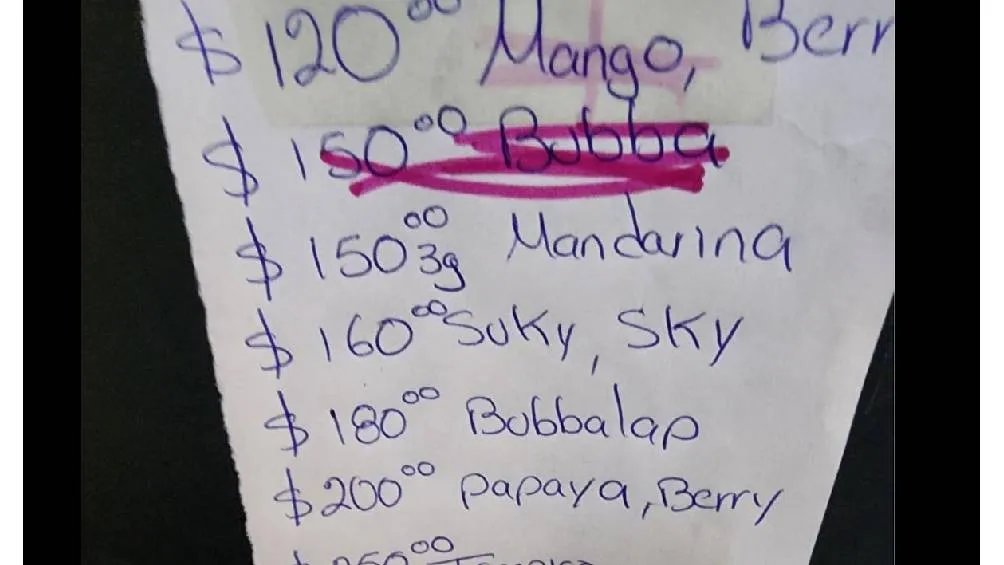 $120⁰⁰ Mango, Berr
$150⁰⁰ Bubba
$150⁰⁰ 3g Mandarina
$160⁰⁰ Suky, Sky
$180⁰⁰ Bubbalap
$200⁰⁰ Papaya, Berry